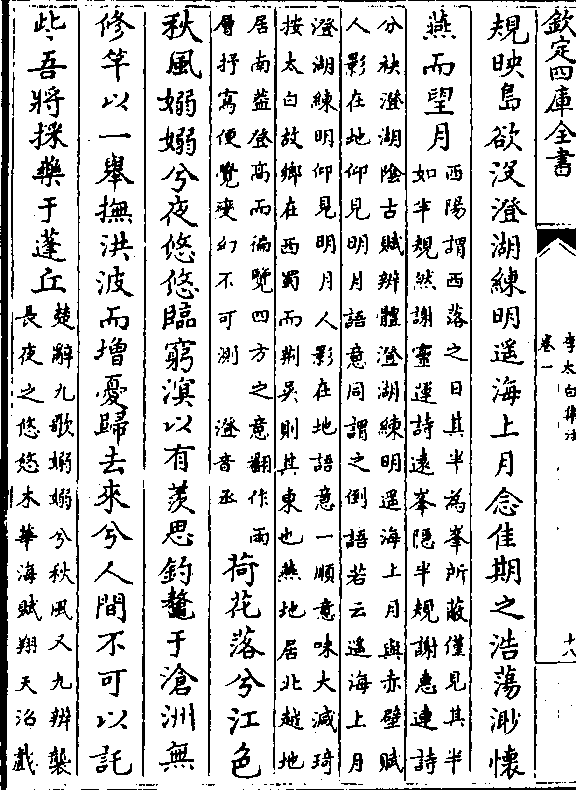 欽定四庫全書
李太白集注
卷一
十八
規映島欲没澄湖練明遥海上月念佳期之浩蕩渺懷
燕而望月
西陽謂西落之日其半為峯所蔽僅見其半
如半規然謝靈運詩遠峯隠半規謝惠連詩
分袂澄湖陰古賦辨體澄湖練明遥海上月與赤壁賦
人影在地仰見明月語意同謂之倒語若云遥海上月
澄湖練明仰見明月人影在地語意一順意味大減琦
按太白故鄉在西蜀而荆吳則其東也燕地居北越地
居南蓋登高而徧覽四方之意翻作兩
層抒寫便覺變幻不可測 澄音丞
荷花落兮江色
秋風嫋嫋兮夜悠悠臨窮溟以有羨思釣鼇于滄洲無
修竿以一舉撫洪波而增憂歸去來兮人間不可以託
些吾將採藥于蓬丘
楚辭九歌嫋嫋兮秋風又九辨襲
長夜之悠悠木華海賦翔天沼戲